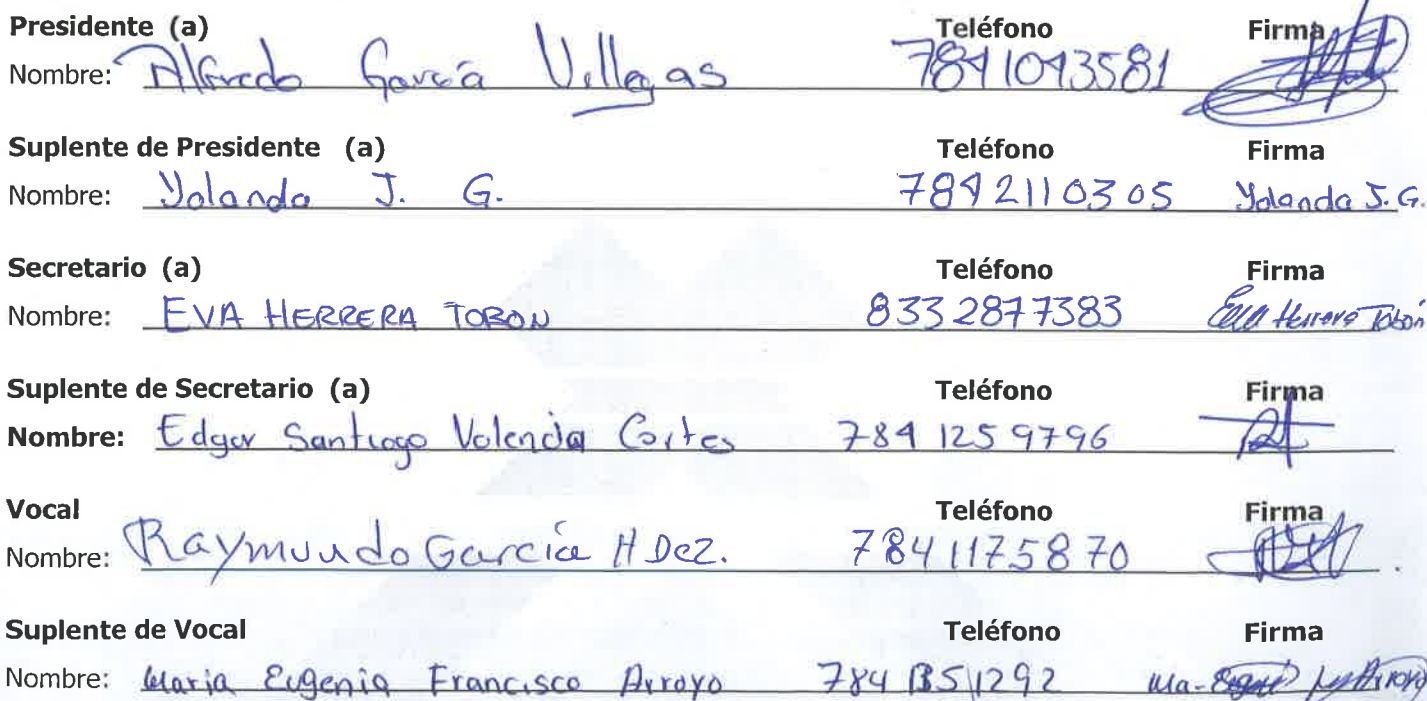 Presidente (a) Teléfono Firma
Nombre: Alfredo García Villegas 7841043581
Suplente de Presidente (a) Teléfono Firma
Nombre: Yolanda J. G. 7842110305 Yolanda J. G.
Secretario (a) Teléfono Firma
Nombre: EVA HERRERA TOBON 8332877383 Eva Herrera Tobón
Suplente de Secretario (a) Teléfono Firma
Nombre: Edgar Santiago Valencia Cortes 784 125 9796
Vocal Teléfono Firma
Nombre: Raymundo García HDez. 7841175870
Suplente de Vocal Teléfono Firma
Nombre: Maria Eugenia Francisco Arroyo 784 1351292 Ma- Arroyo